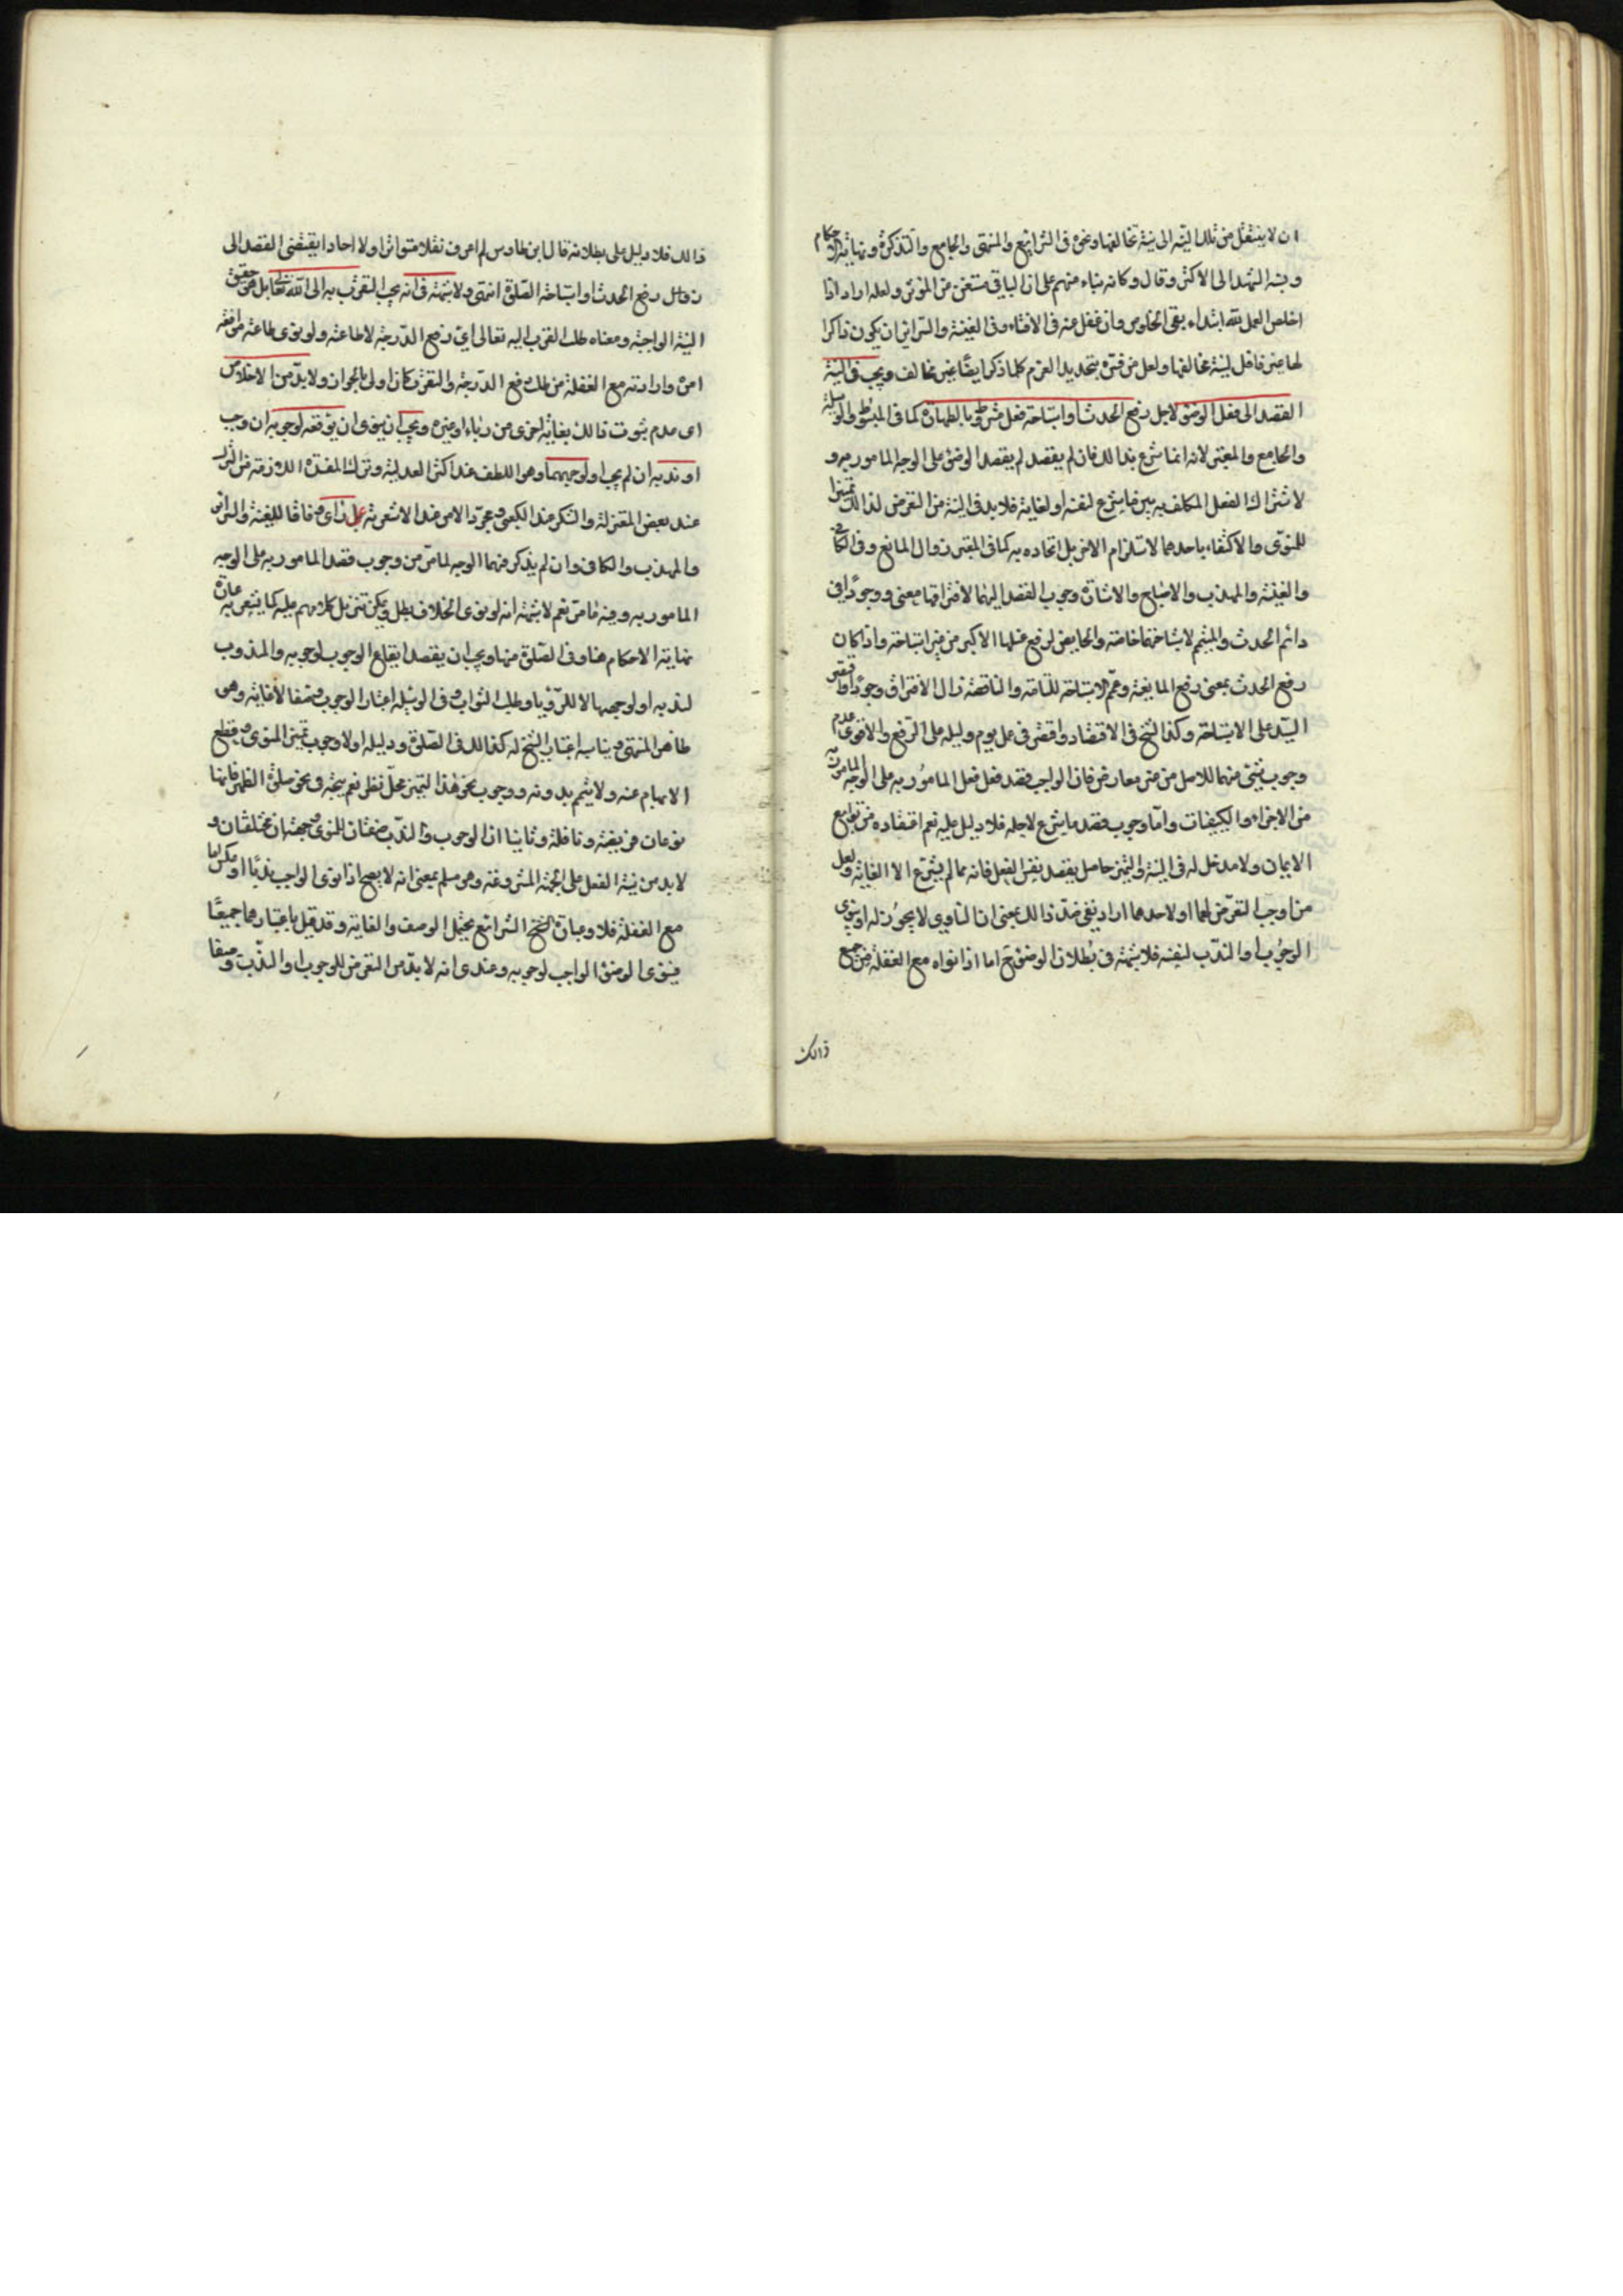 ان لا ينتقل من تلك النية الى نية تخالفها ونحوه فى الشرايع والمنتهى والجامع والتذكرة ونهاية الاحكام
ونسبه الشهيد الى الاكثر وقال وكانه بناء منهم على ان الباقى مستغن عن المؤثر ولعله اراد اذا
اخلص العمل لله ابتداء بقى الخلوص وان غفل عنه فى الاثناء وفى الغنية والسرائر ان يكون ذاكرا
لها غير فاعل لنية تخالفها ولعل من فسره بتجديد العزم كلما ذكر ايضا غير مخالف ويجب فى النية
القصد الى فعل الوضوء لاجل رفع الحدث او استباحة فعل مشروط بالطهارة كما فى المبسوط والوسيلة
والجامع والمعتبر لانه انما شرع بذلك فان لم يقصد لم يقصد الوضوء على الوجه المامور به و
لاشتراك الفعل المكلف به بين ما يشرع لنفسه او لغاية فلا بد فى النية من التعرض لذلك تمييزا
للمنوى والاكتفاء باحدهما لاستلزام الاخر بل اتحاده به كما فى المعتبر زوال المانع وفى الكافى
والغنية والمهذب والاصباح والاشارة وجوب القصد اليهما لافتراقهما معنى ووجودا فى
دائم الحدث والمتيمم لاستباحتهما خاصة والحايض لرفع غسلها الاكبر من غير استباحة واذا كان
رفع الحدث بمعنى رفع المانعية وعم الاستباحة للتامة والناقصة زال الافتراق وجودا واقتصر
السيد على الاستباحة وكذا الشيخ فى الاقتصاد واقتصر فى عمل يوم وليله على الرفع والاقوى عدم
وجوب شئ منهما للاصل من غير معارض فان الواجب قصد فعل المامور به على الوجه المامور به
من الاجزاء والكيفيات واما وجوب قصد ما يشرع لاجله فلا دليل عليه نعم اعتقاده من توابع
الايمان ولا مدخل له فى النية والتميز حاصل بقصد نفس الفعل فانه مما لم يشرع الا لغاية ولعل
من اوجب التعرض لهما او لاحدهما اراد نفى ضد ذالك بمعنى ان الناوى لا يجوز له ان ينوى
الوجوب او الندب لنفسه فلا شبهة فى بطلان الوضوء ح اما اذا نواه مع الغفلة عن جميع
ذالك
ذالك فلا دليل على بطلانه قال ابن طاوس لم اعرف نقلا متواترا ولا احادا يقتضى القصد الى
رفع الحدث او استباحة الصلوة انتهى ولا شبهة فى انه يجب التقرب به الى الله تعالى بل هو حقيقة
النية الواجبة ومعناه طلب القرب اليه تعالى اى رفع الدرجة لاطاعته ولو نوى طاعته موافقة
امره وارادته مع الغفلة من طلب رفع الدرجة والتقرب كان اولى بالجواز ولا بد من الاخلاص
اى عدم شوب ذالك بغاية اخرى من رياء او غيره ويجب ان ينوى ان يوقعه لوجوبه ان وجب
او ندبه ان لم يجب او لوجههما وهو اللطف عند اكثر العدلية وترك المفسدة اللازمة من الترك
عند بعض المعتزلة والشكر عند الكعبى ومجرد الامر عند الاشعرية على راى وفاقا للغنية والسرائر
والمهذب والكافى وان لم يذكر فيهما الوجه لما مر من وجوب قصد المامور به على الوجه
المامور به وفيه ما مر نعم لا شبهة انه لو نوى الخلاف بطل ويمكن تنزيل كلامهم عليه كما يشعر به عبارة
نهاية الاحكام هنا وفى الصلوة منها ويجب ان يقصد ايقاع الواجب لوجوبه والمندوب
لندبه او لوجههما لا للرياء وطلب الثواب وفى الوسيلة اعتبار الوجوب وصفا لا غاية وهو
ظاهر المنتهى ويناسبه اعتبار الشيخ له كذالك فى الصلوة ودليله اولا وجوب تميز المنوى وقطع
الابهام عنه ولا يتم بدونه ووجوب نحو هذا التميز محل نظر نعم يتجه فى نحو صلوة الظهر فانها
نوعان فريضة ونافلة وثانيا ان الوجوب والندب صفتان للمنوى وجهتان مختلفتان و
لا بد من نية الفعل على الجهة المشروعة وهو مسلم بمعنى انه لا يصح اذا نوى الواجب ندبا او بالعكس
مع الغفلة فلا وعبارة الشيخ الشرايع يحتمل الوصف والغاية وقد قيل باعتبارهما جميعا
فينوى الوضوء الواجب لوجوبه وعندى انه لا بد من التعرض للوجوب او الندب وصفا